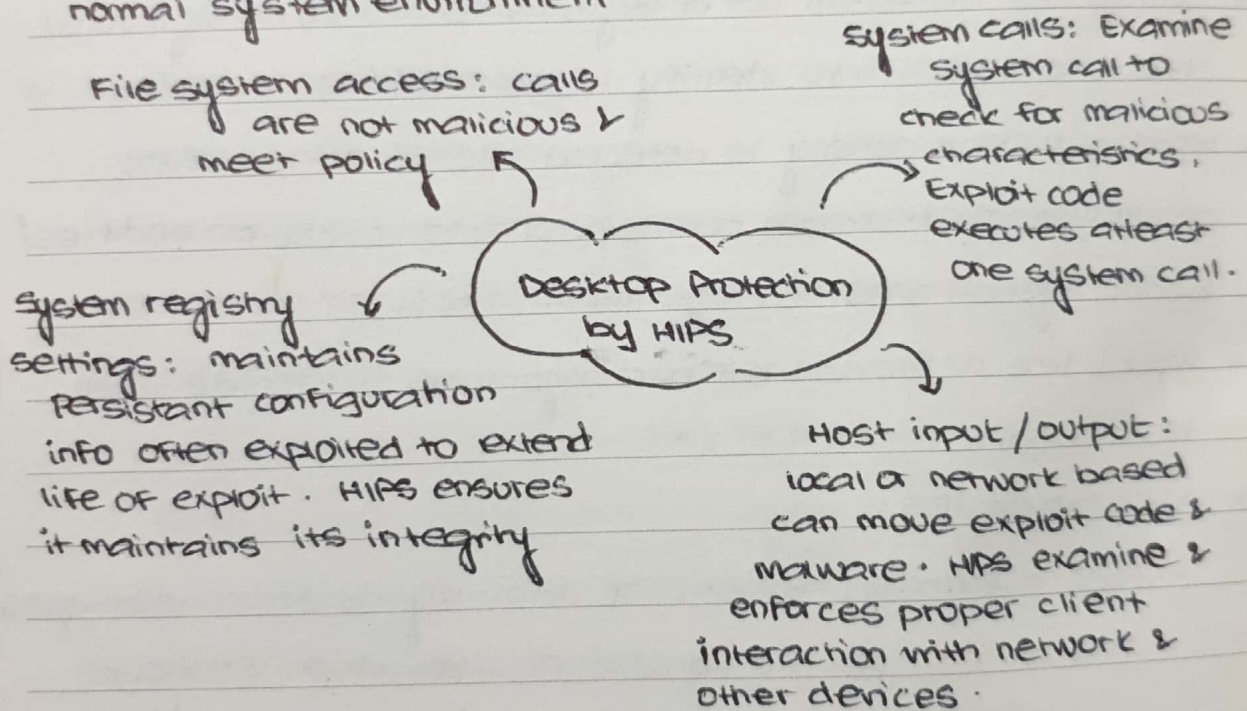 normal system environment
File system access: calls
are not malicious &
meet policy
System calls: Examine
system call to
check for malicious
characteristics.
Exploit code
executes atleast
one system call.
Desktop Protection
by HIPS
System registry
settings: maintains
persistant configuration
info often exploited to extend
life of exploit. HIPS ensures
it maintains its integrity
Host input/output:
local or network based
can move exploit code &
malware. HIPS examine &
enforces proper client
interaction with network &
other devices.